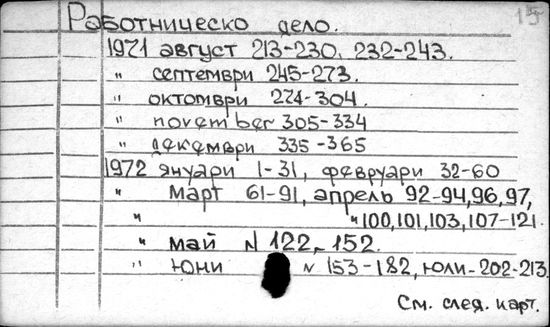 15
Работническо дело.
1971 август 213-230, 232-243.
" септември 245-273.
" октомври 274-304.
" november 305-334
" декември 335-365
1972 януари 1-31, февруари 32-60
" март 61-91, апрель 92-94,96,97,
" "100,101,103,107-121.
" май N 122-152.
" юни N 153-182, юли-202-213.
См. след. карт.